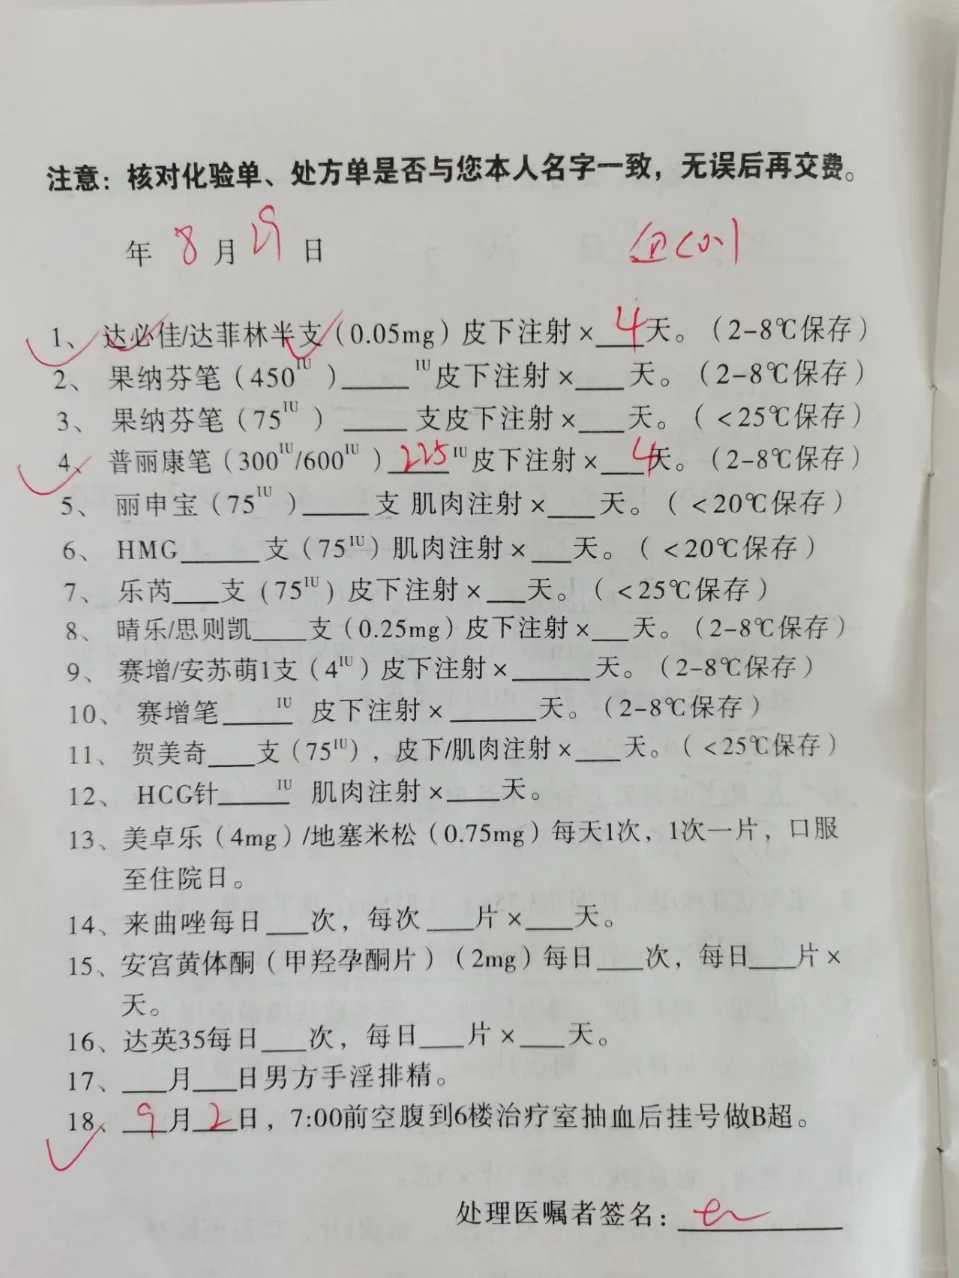 注意：核对化验单、处方单是否与您本人名字一致，无误后再交费。
年 8 月 29 日
1、达必佳/达菲林半支（0.05mg）皮下注射×4天。（2-8℃保存）
2、 果纳芬笔（450IU ）____IU皮下注射×___天。（2-8℃保存）
3、 果纳芬笔（75IU ）____支皮下注射×___天。（<25℃保存）
4、 普丽康笔（300IU/600IU ）225IU皮下注射×4天。（2-8℃保存）
5、 丽申宝（75IU ）____支 肌肉注射×___天。（<20℃保存）
6、 HMG____支（75IU）肌肉注射×___天。（<20℃保存）
7、 乐芮___支（75IU）皮下注射×___天。（<25℃保存）
8、 晴乐/思则凯____支（0.25mg）皮下注射×___天。（2-8℃保存）
9、 赛增/安苏萌1支（4IU）皮下注射×______天。（2-8℃保存）
10、 赛增笔_____IU 皮下注射×______天。（2-8℃保存）
11、 贺美奇___支（75IU），皮下/肌肉注射×___天。（<25℃保存）
12、 HCG针_____IU 肌肉注射×____天。
13、美卓乐（4mg）/地塞米松（0.75mg）每天1次，1次一片，口服
至住院日。
14、来曲唑每日___次，每次___片×___天。
15、安宫黄体酮（甲羟孕酮片）（2mg）每日___次，每日___片×
天。
16、达英35每日___次，每日___片×___天。
17、___月___日男方手淫排精。
18、9月2日，7:00前空腹到6楼治疗室抽血后挂号做B超。
处理医嘱者签名：